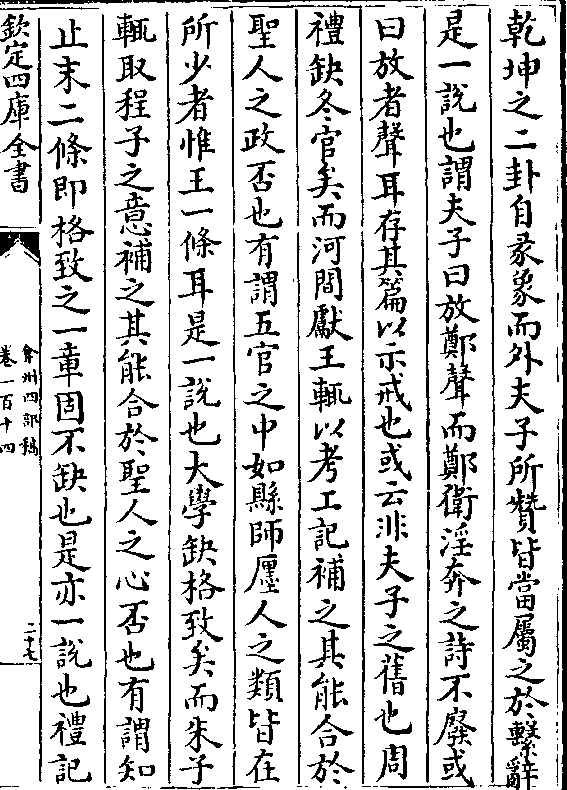 乾坤之二卦自彖象而外夫子所贊皆當屬之於繫辭
是一說也謂夫子曰放鄭聲而鄭衛淫奔之詩不廢或
曰放者聲耳存其篇以示戒也或云非夫子之舊也周
禮缺冬官矣而河間獻王輒以考工記補之其能合於
聖人之政否也有謂五官之中如縣師廛人之類皆在
所少者惟王一條耳是一說也大學缺格致矣而朱子
輒取程子之意補之其能合於聖人之心否也有謂知
止末二條即格致之一章固不缺也是亦一說也禮記
欽定四庫全書
弇州四部稿
卷一百十四
二十七